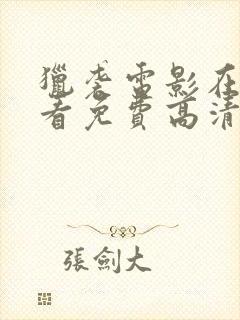 獵袭雷影在
看免費高清
張劍大